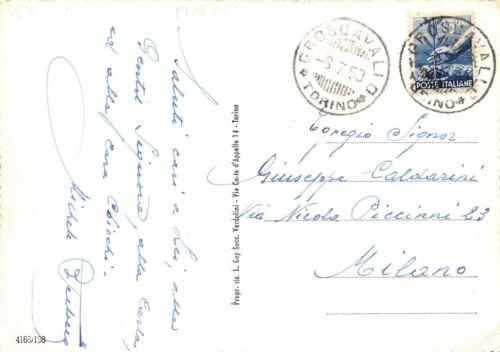 Saluti cari a Lei, alla
Gentil Signora, alla Carla,
ed alla cara Cicchi.
Michele
Propr. ris. L. Guy Succ. Verdolini - Via Corte d'Appello 14 - Torino
4166/198
GROSCAVALLO
-8.7.50
TORINO
GROSCAVALLO
TORINO
POSTE ITALIANE
Egregio Signor
Giuseppe Caldarini
Via Nicola Piccinni 23
Milano